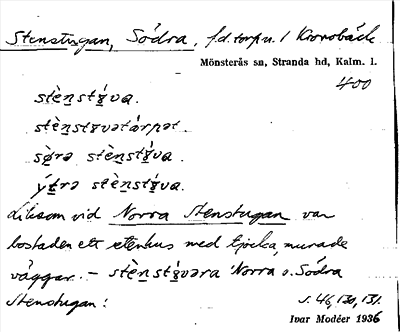 Stenstugan, Södra, f.d. torp u. 1 Kronobäck
Mönsterås sn, Stranda hd, Kalm. l.
400
stènstú̱va.
stènstu̱vətárpət.
sø̀rə stènstú̱va.
ýtrə stènstú̱va.
Liksom vid Norra Stenstugan var
bostaden ett stenhus med tjocka, murade
väggar. – stènstú̱vəra 'Norra o. Södra
Stenstugan'.
s. 46, 130, 131.
Ivar Modéer 1936